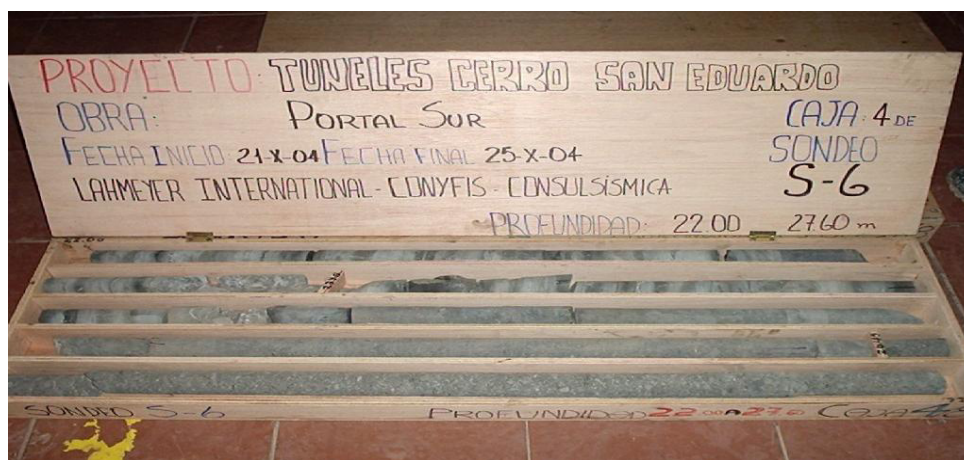 PROYECTO TUNELES CERRO SAN EDUARDO
OBRA: PORTAL SUR CAJA: 4 DE
FECHA INICIO: 21-X-04 FECHA FINAL 25-X-04 SONDEO
LAHMEYER INTERNATIONAL-CONYFIS-CONSULSÍSMICA S-6
PROFUNDIDAD: 22.00 27.60 m
22.00
SONDEO S-6 PROFUNDIDAD 22.00 A 27.60 CAJA 4